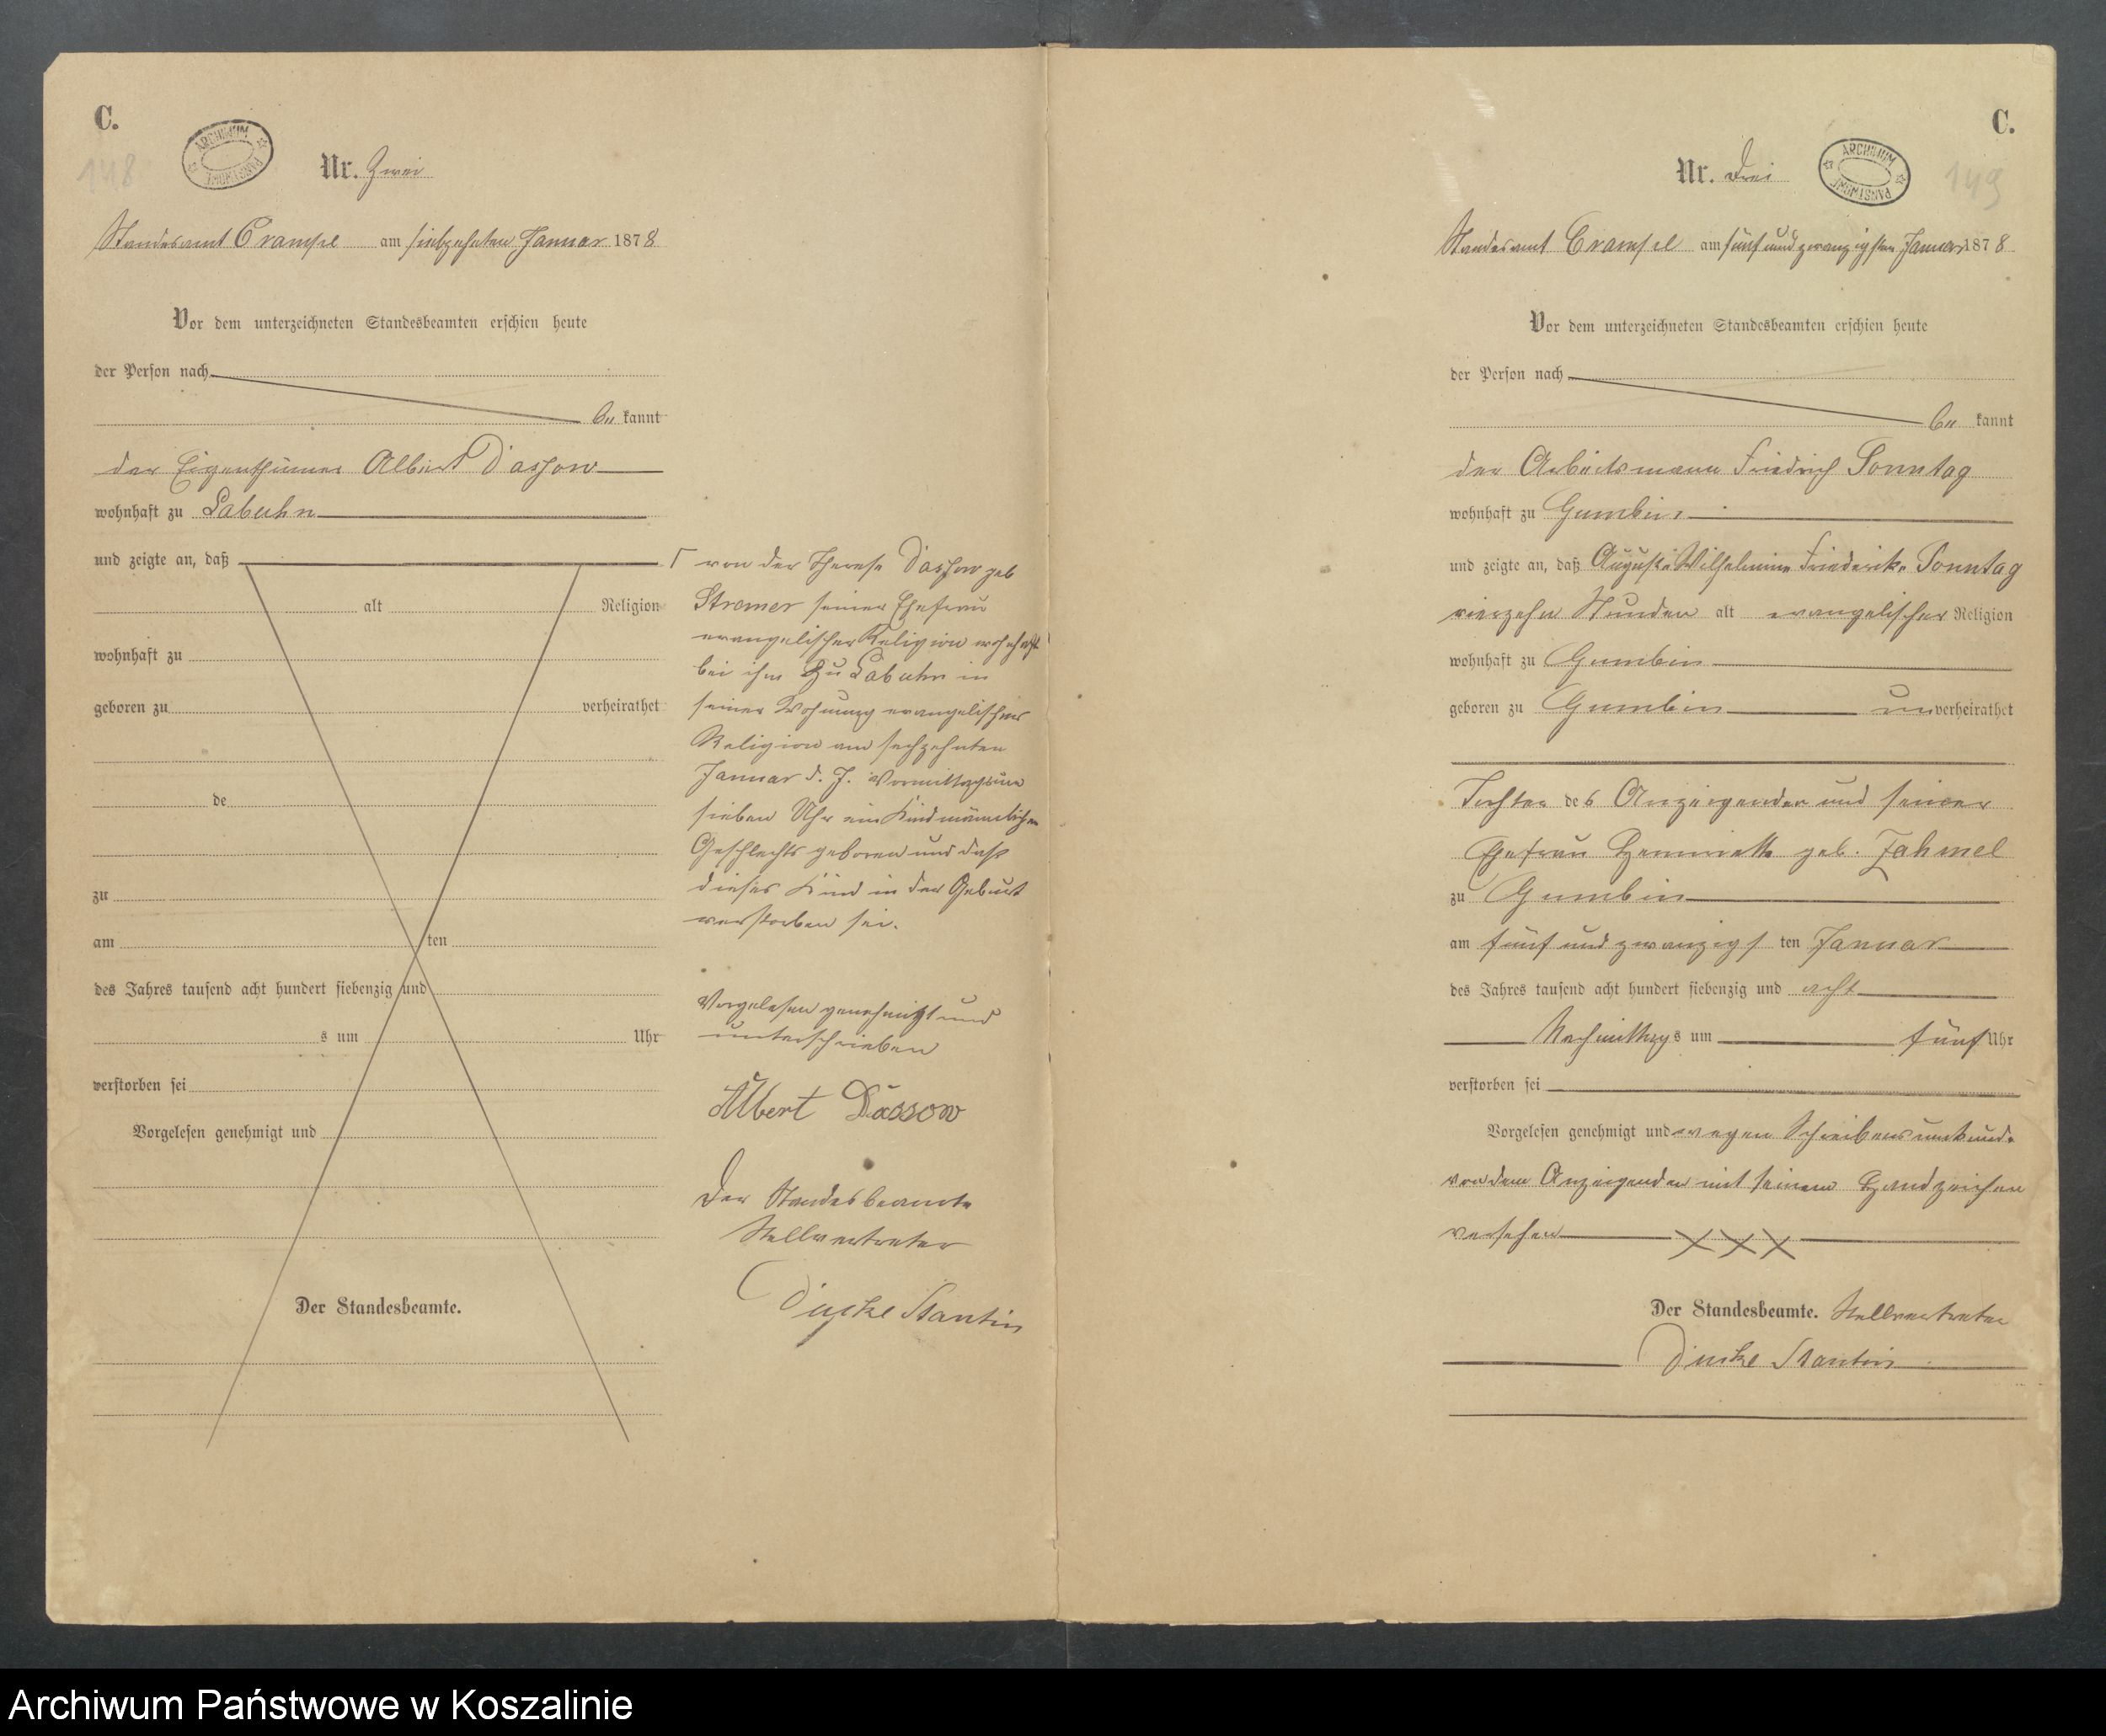 C.
148
ARCHIWUM PAŃSTWOWE
Nr. Zwei
Standesamt Crampe am siebzehnten Januar 1878
Vor dem unterzeichneten Standesbeamten erschien heute
der Person nach
be kannt
der Eigenthümer Albert Dassow
wohnhaft zu Labuhn
und zeigte an, daß
alt Religion
wohnhaft zu
geboren zu verheirathet
de
zu
am ten
des Jahres tausend acht hundert siebenzig und
s um Uhr
verstorben sei
Vorgelesen genehmigt und
Der Standesbeamte.
von der Therese Dassow geb
Stremer seiner Ehefrau
evangelischer Religion wohnhaft
bei ihm zu Labuhn in
seiner Wohnung evangelischer
Religion am sechzehnten
Januar d. J. Vormittags um
sieben Uhr ein Kind männlichen
Geschlechts geboren und dass
dieses Kind in der Geburt
verstorben sei.
Vorgelesen genehmigt und
unterschrieben
Albert Dassow
Der Standesbeamte
Stellvertreter
C.
149
ARCHIWUM PAŃSTWOWE
Nr. Drei
Standesamt Crampe am fünf und zwanzigsten Januar 1878
Vor dem unterzeichneten Standesbeamten erschien heute
der Person nach
be kannt
der Arbeitsmann Friedrich Sonntag
wohnhaft zu Gumbin
und zeigte an, daß Auguste Wilhelmine Friederike Sonntag
vierzehn Stunden alt evangelischer Religion
wohnhaft zu Gumbin
geboren zu Gumbin unverheirathet
Tochter des Anzeigenden und seiner
Ehefrau Henriette geb. Jahmel
zu Gumbin
am fünf und zwanzigs ten Januar
des Jahres tausend acht hundert siebenzig und acht
Nachmittags um fünf Uhr
verstorben sei
Vorgelesen genehmigt und wegen Schreibensunkunde
von dem Anzeigenden mit seinem Handzeichen
versehen XXX
Der Standesbeamte. Stellvertreter
Archiwum Państwowe w Koszalinie